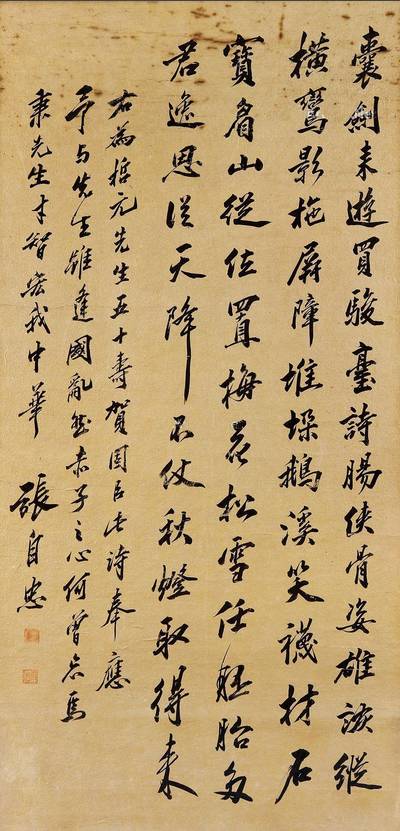 囊劍来遊買駿臺詩腸俠骨姿雄談縱
橫鸞影拖屏障堆垛鵝溪笑襪材石
寶眉山從位置梅花松雪任胚胎多
君逸恩從天降不仗秋燈取得来
右為哲元先生五十壽賀因占此詩奉應
予与先生雖逢國亂然赤子之心何曾忘焉
秉先生才智宏我中華
張自忠